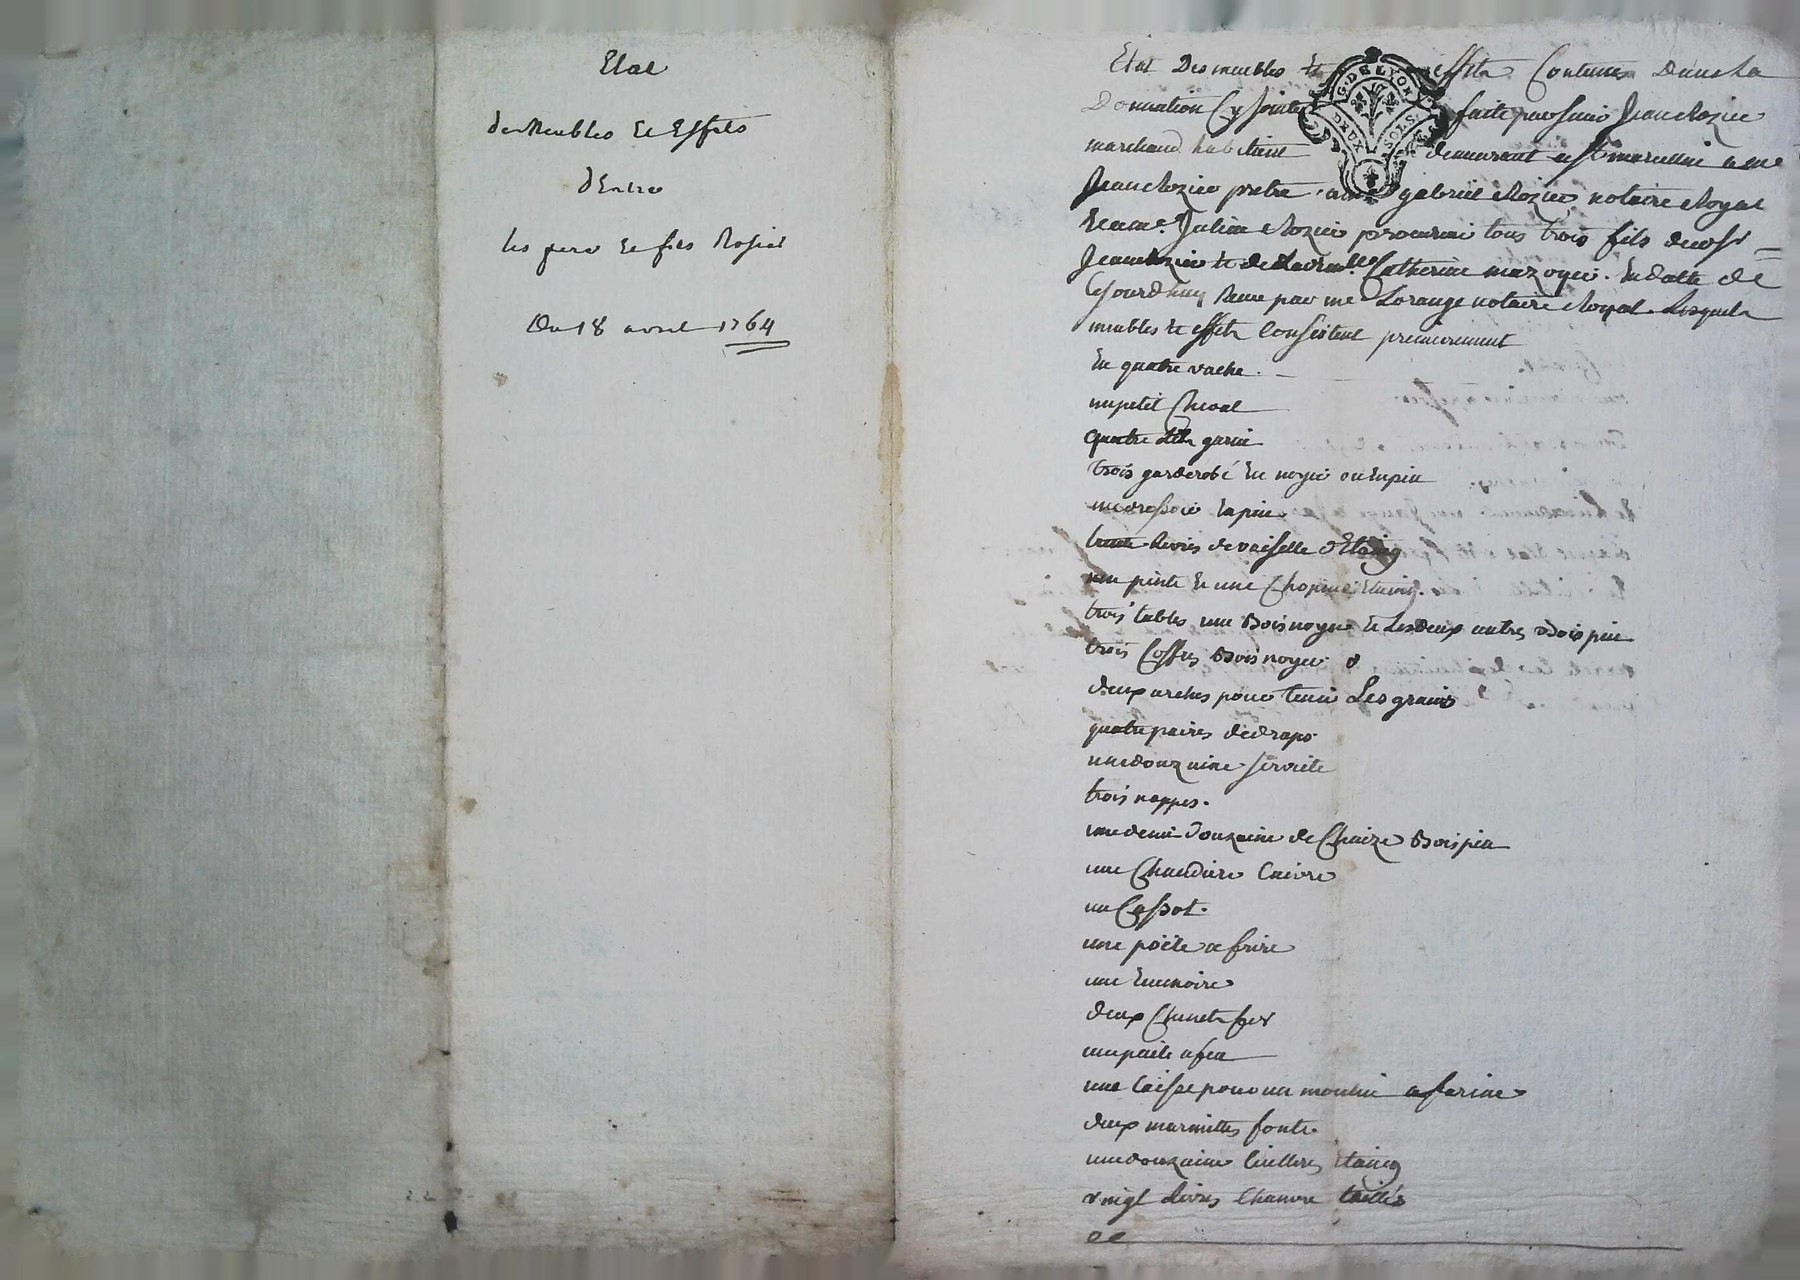 Etat
des Meubles et Effets
d'Entre
les pere et fils Rosier
Du 18 avril 1764
Etat Des meubles et effets Contenus Dans la
G. DE LYON
DEUX SOLS
Donnation Cy jointe faite par sieur Jean Rozier
marchand habitant demurant a St marcellin a me
Jean Rozier pretre a me gabriel Rozier notaire Royal
Et a me. Julien Rozier procureur tous trois fils dudt sr
Jean Rozier et de Catherine mazoyer. En datte de
Cejourdhuy Reçue par me Lorange notaire Royal. Lesquels
meubles et effets Consistent premierement
En quatre vache.
un petit Cheval
quatre Lits garni
trois garderobe En noyer ou En pin
un dressoir En pin
trente Livres de vaiselle d'Etaing
une pinte et une Chopine Etaing.
trois tables, une Bois noyer et Les deux autres Bois pin
trois Coffres Bois noyer &
deux arches pour tenir Les grains
quatre paires de draps
une douzaine serviete
trois nappes.
une demi douzaine de Chaize Bois pin
une Chaudiere Cuivre
un Cassot.
une poële a frire
une
deux Chenets fer
une paile a feu
une Caisse pour un moulin a farine
deux marmittes fonte
une douzaine Cuilleres Etaing
& vingt Livres Chanvre taillés